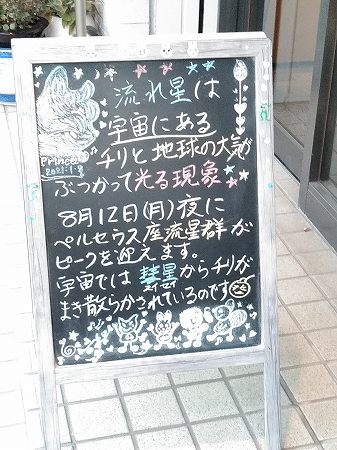 流れ星は
宇宙にある
チリと地球の大気が
ぶつかって光る現象
8月12日(月)夜に
ペルセウス座流星群が
ピークを迎えます。
宇宙では彗星からチリが
スイセイ
まき散らかされているのです
Prince